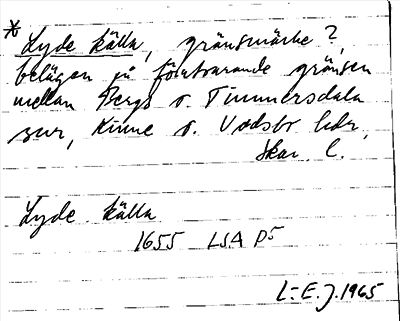 * Lyde källa, gränsmärke?,
belägen på förutvarande gränsen
mellan Bergs o. Timmersdala
snr, Kinne o. Vadsbo hdr,
Skar. l.
Lyde källa
1655 LSA P5
L-E. J. 1965